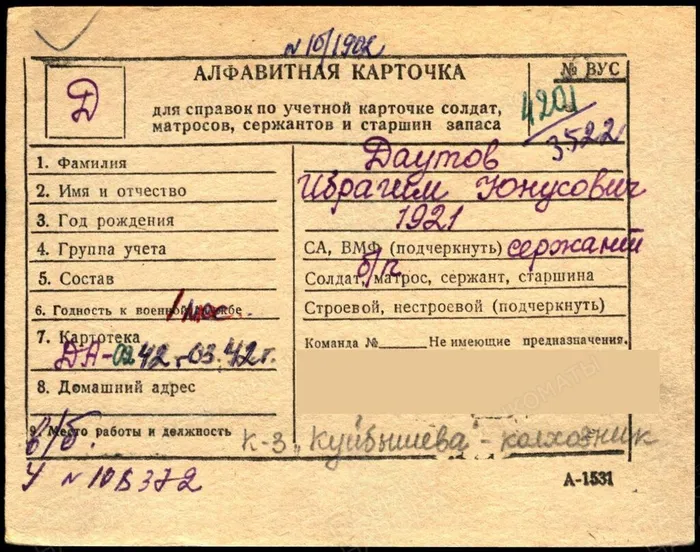 № 10/1902
АЛФАВИТНАЯ КАРТОЧКА
№ ВУС
Д
для справок по учетной карточке солдат,
матросов, сержантов и старшин запаса
4201
3522
1. Фамилия
Даутов
2. Имя и отчество
Ибрагим Юнусович
3. Год рождения
1921
4. Группа учета
СА, ВМФ (подчеркнуть) сержант
5. Состав
б/п
Солдат, матрос, сержант, старшина
6. Годность к военной службе
Строевой, нестроевой (подчеркнуть)
7. Картотека
Команда № Не имеющие предназначения.
ДА-0242-03.42г.
8. Домашний адрес
9. Место работы и должность
в/б.
К-З „Куйбышева" - колхозник
У № 108372
А-1531